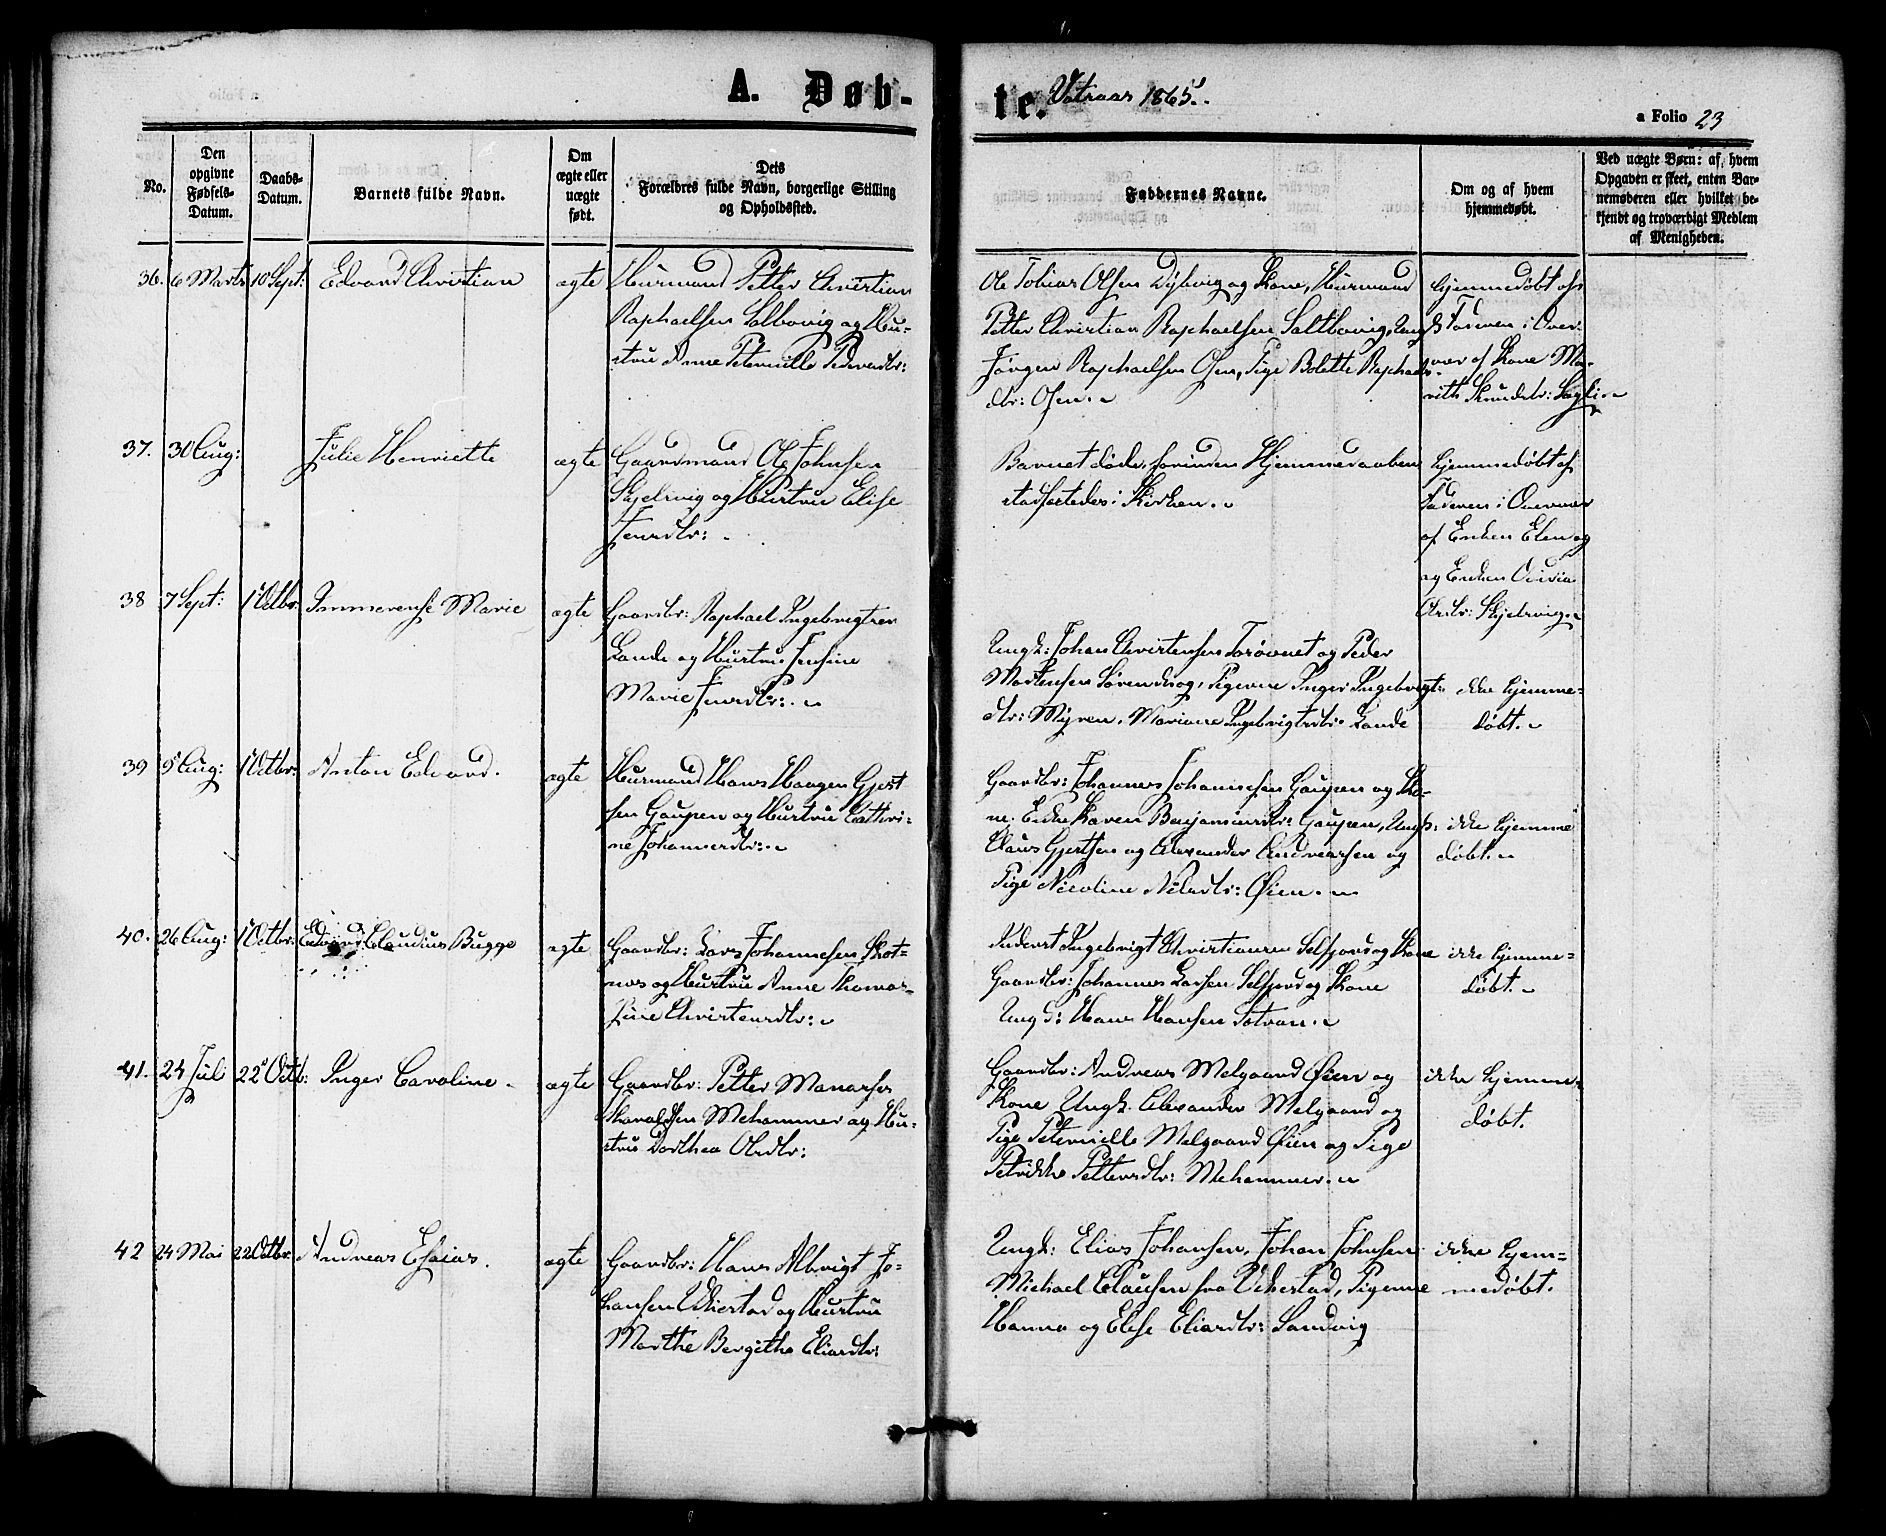 A. Døb-
te. 1865.
a Folio 23
No.
Den opgivne Fødsels-Datum.
Daabs-Datum.
Barnets fulde Navn.
Om ægte eller uægte født.
Dets Forældres fulde Navn, borgerlige Stilling og Opholdssted.
Faddernes Navne.
Om og af hvem hjemmedøbt.
Ved uægte Børn: af, hvem Opgaven er skeet, enten Barnemoderen eller hvilket bekjendt og troværdigt Medlem af Menigheden.
36. 6 Marts 10 Sept: Edvard Christian ægte Huusmand Petter Christian
Raphaelsen Saltbovig og Hu-
stru Anne Peternille Pedersdtr:
Ole Tobias Olsen Dybvig og Kone, Huusmand
Petter Christian Raphaelsen Saltbovig, Ungk
Jørgen Raphaelsen Osen, Pige Bolette Raphaels-
dtr: Osen.
hjemmedøbt af
Faderen i Over-
vær af Kone Ma-
rith Knudsdtr:
37. 30 Aug: Julie Henriette ægte Gaardmand Ole Johnsen
Skjelvig og Hustru Elise
Jensdtr:
Barnet døde, forinden Hjemmedaaben
stadfæstedes i Kirken.
hjemmedøbt af
Faderen i Overvær
af Enken Elen og
og Enken Olivia
Olsdtr: Skjelvig.
38 7 Sept: 1 Octbr: Immerense Marie ægte Gaardbr: Raphael Ingebrigtsen
Lande og Hustru Jensine
Marie Jensdtr:
Ungk: Johan Christensen og Peder
Mortensen, Pigerne Inger Ingebrigts-
dtr: Myren, Mariane Ingebrigtsdtr: Lande
ikke hjemme-
døbt.
39 9 Aug: 1 Octbr: Anton Edvard. ægte Huusmand Hans Haagen Gjert
sen Gaupen og Hustru Cathri-
ne Johannesdtr:
Gaardbr: Johannes Johannesen Gaupen og Ko-
ne. Enke Karen Benjaminsdtr: Gaupen, Ungk:
Claus Gjertsen og Alexander Andreassen og
Pige Nicoline Nilsdtr: Øien.
ikke hjemme
døbt.
40. 26 Aug: 1 Octbr: Edvard Claudius Bugge ægte Gaardbr: Lars Johannesen Skot-
næs og Hustru Anne Thomas-
sine Christensdtr:
Inderst Ingebrigt Christiansen Selfjord og Kone
Gaardbr: Johannes Larsen Selfjord og Kone
Ungk: Hans Hansen
ikke hjemme-
døbt.
41. 24 Juli 22 Octb: Inger Caroline. ægte Gaardbr: Petter Manasses
Haraldsen Mehammer og Hu-
stru Dorthea Olsdtr:
Gaardbr: Andreas Melgaard Øien og
Kone Ungk. Alexander Melgaard og
Pige Peternille Melgaard Øien og Pige
Petrikke Pettersdtr: Mehammer.
ikke hjemme-
døbt.
42 24 Mai 22 Octbr: Andreas Esaias. ægte Gaardbr: Hans Albrigt Jo-
hansen Vikestad og Hustru
Marthe Bergithe Eliasdtr:
Ungk: Elias Johansen, Johan Johnsen
Michael Clausen fra Vikestad, Pigerne
Hanna og Elise Eliasdtr: Sandvig
ikke hjem-
medøbt.